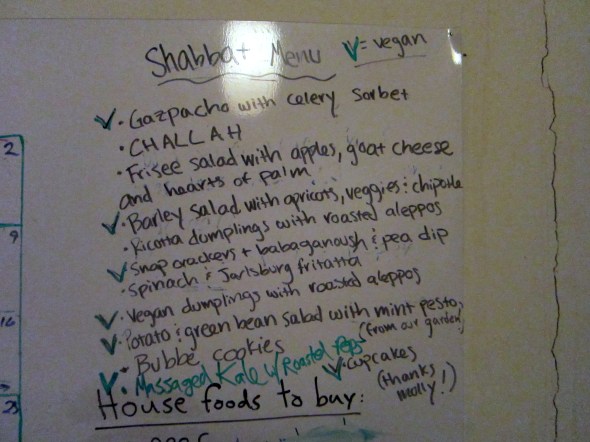 Shabbat Menu V = vegan
V • Gazpacho with celery sorbet
• CHALLAH
• Frisee salad with apples, goat cheese
and hearts of palm
V • Barley salad with apricots, veggies & chipotle
• Ricotta dumplings with roasted aleppos
V Snap crackers + babaganoush & pea dip
• Spinach & Jarlsburg fritatta
V • Vegan dumplings with roasted aleppos
V • Potato & green bean salad with mint pesto,
(from our garden)
• Bubbe cookies
V • Massaged Kale w/ Roasted Peps
V • cupcakes
(thanks
molly!)
House foods to buy:
2
9
16